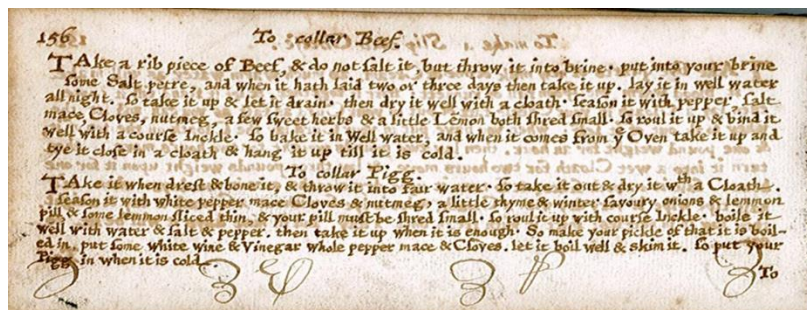 156 To collar Beef.
TAke a rib piece of Beef, & do not salt it, but throw it into brine. put into your brine
some Salt petre, and when it hath laid two or three days then take it up. lay it in well water
all night. so take it up & let it drain. then dry it well with a cloath. season it with pepper, salt
mace, Cloves, nutmeg, a few sweet herbs & a little Lemon both shred small. so roul it up & bind it
well with a course Inckle. so bake it in Well water, and when it comes from ẏ Oven take it up and
tye it close in a cloath & hang it up till it is cold.
To collar Pigg.
TAke it when drest & bone it, & throw it into fair water. so take it out & dry it wth a Cloath.
season it with white pepper mace Cloves & nutmeg, a little thyme & winter savoury onions & lemmon
pill & some lemmon sliced thin, & your pill must be shred small. so roul it up with course Inckle. boile it
well with water & salt & pepper. then take it up when it is enough. So make your pickle of that it is boil-
ed in. put some white wine & Vinegar whole pepper mace & Cloves. let it boil well & skim it. so put your
Pigg in when it is cold.
To